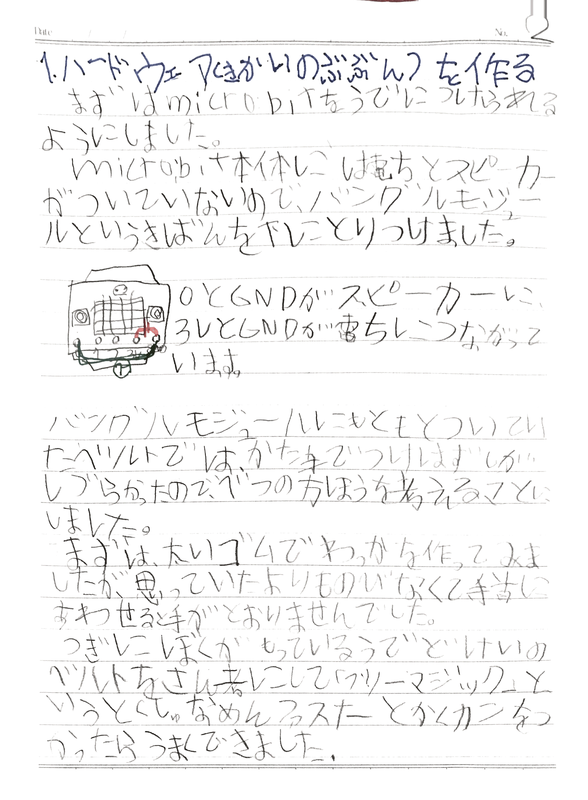 Date
No.
1. ハードウェア(きかいのぶぶん)を作る
まずはmicrobitをうでにつけられる
ようにしました。
microbit本体には電ちとスピーカー
がついていないので、バングルモジュー
ルというきばんを下にとりつけました。
0とGNDがスピーカーに、
3VとGNDが電ちにつながって
います。
バングルモジュールにもともとついてい
たベルトでは、かた手でつけはずしが
しづらかったので、べつの方ほうを考えることに
しました。
まずは、太いゴムでわっかを作ってみま
したが、思っていたよりものびなくて手首に
あわせると手がとおりませんでした。
つぎにぼくがもっているうでどけいの
ベルトをさん考にして「フリーマジック」と
いうとくしゅなめんファスナーとかくカンをつ
かったらうまくできました。